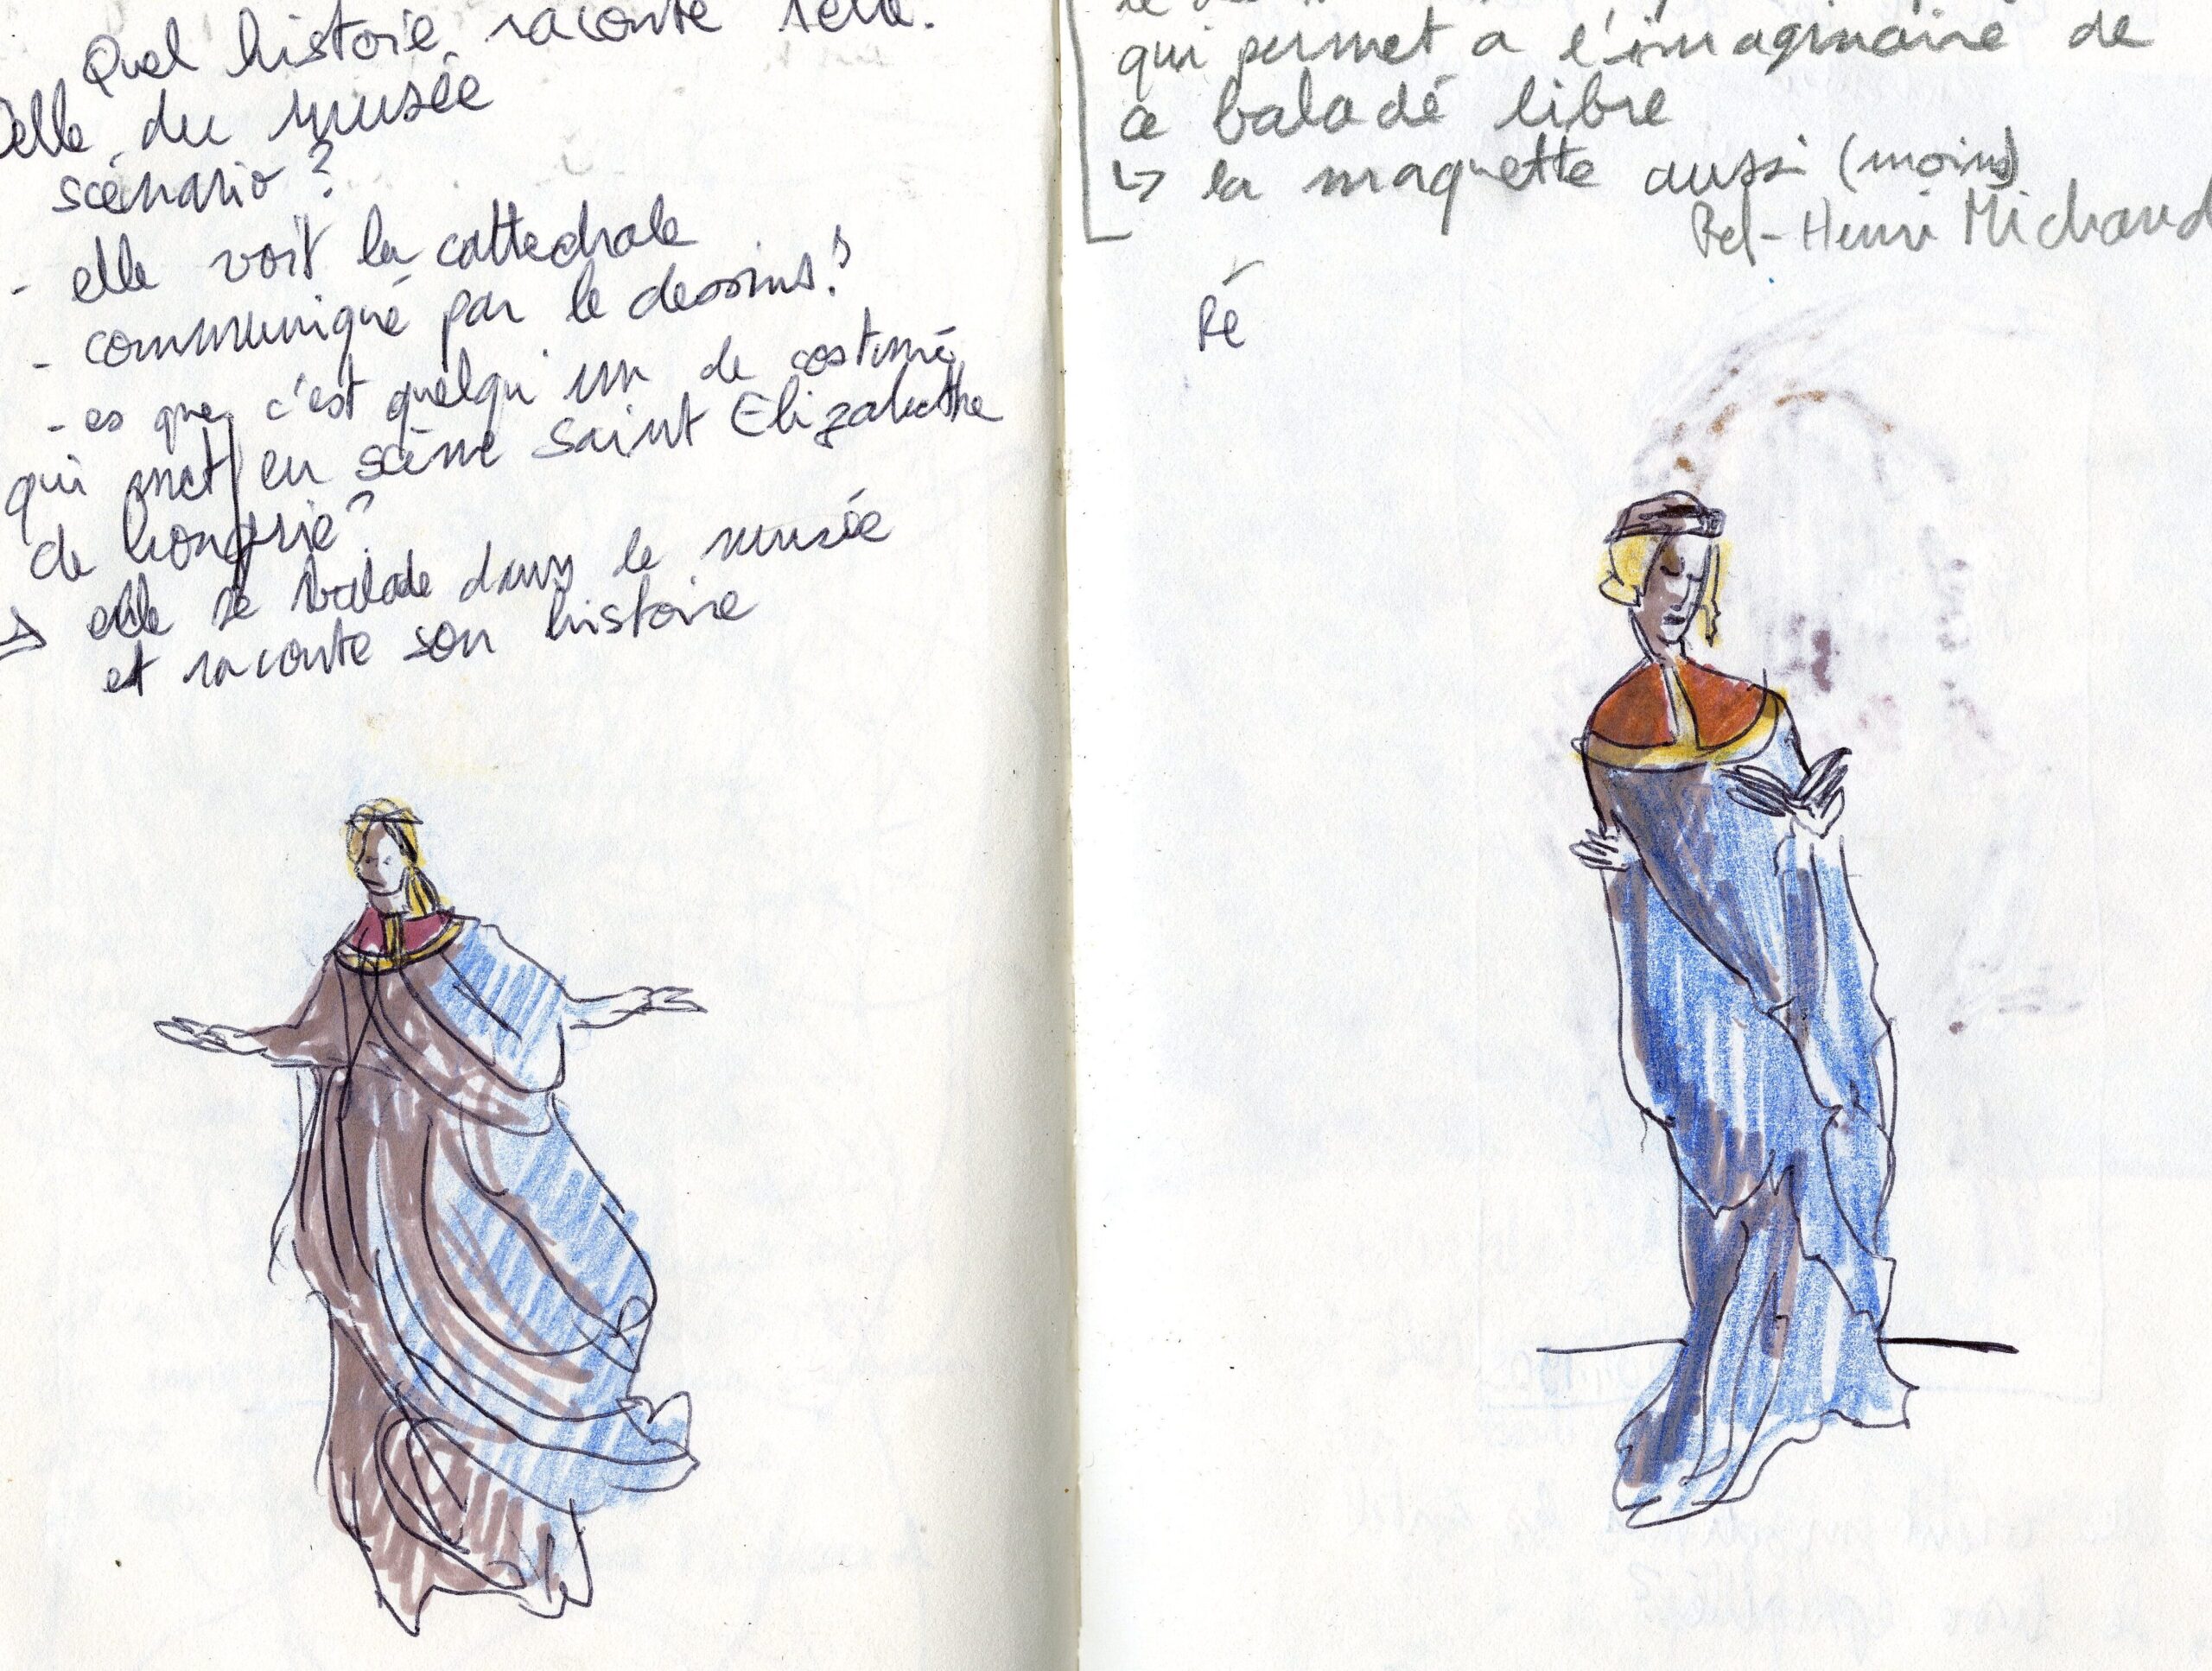 Quel histoire raconte
Celle du musée
scénario ?
- elle voit la cattedrale
- communiqué par le dessins ?
- es que c'est quelqu'un de costumé
qui met en scène Saint Elizabethe
de hongrie ?
→ elle se balade dans le musée
et raconte son histoire
qui permet a l'imaginaire de
ce baladé libre
↳ la maquette aussi (moins)
Henri Michaud
Ré